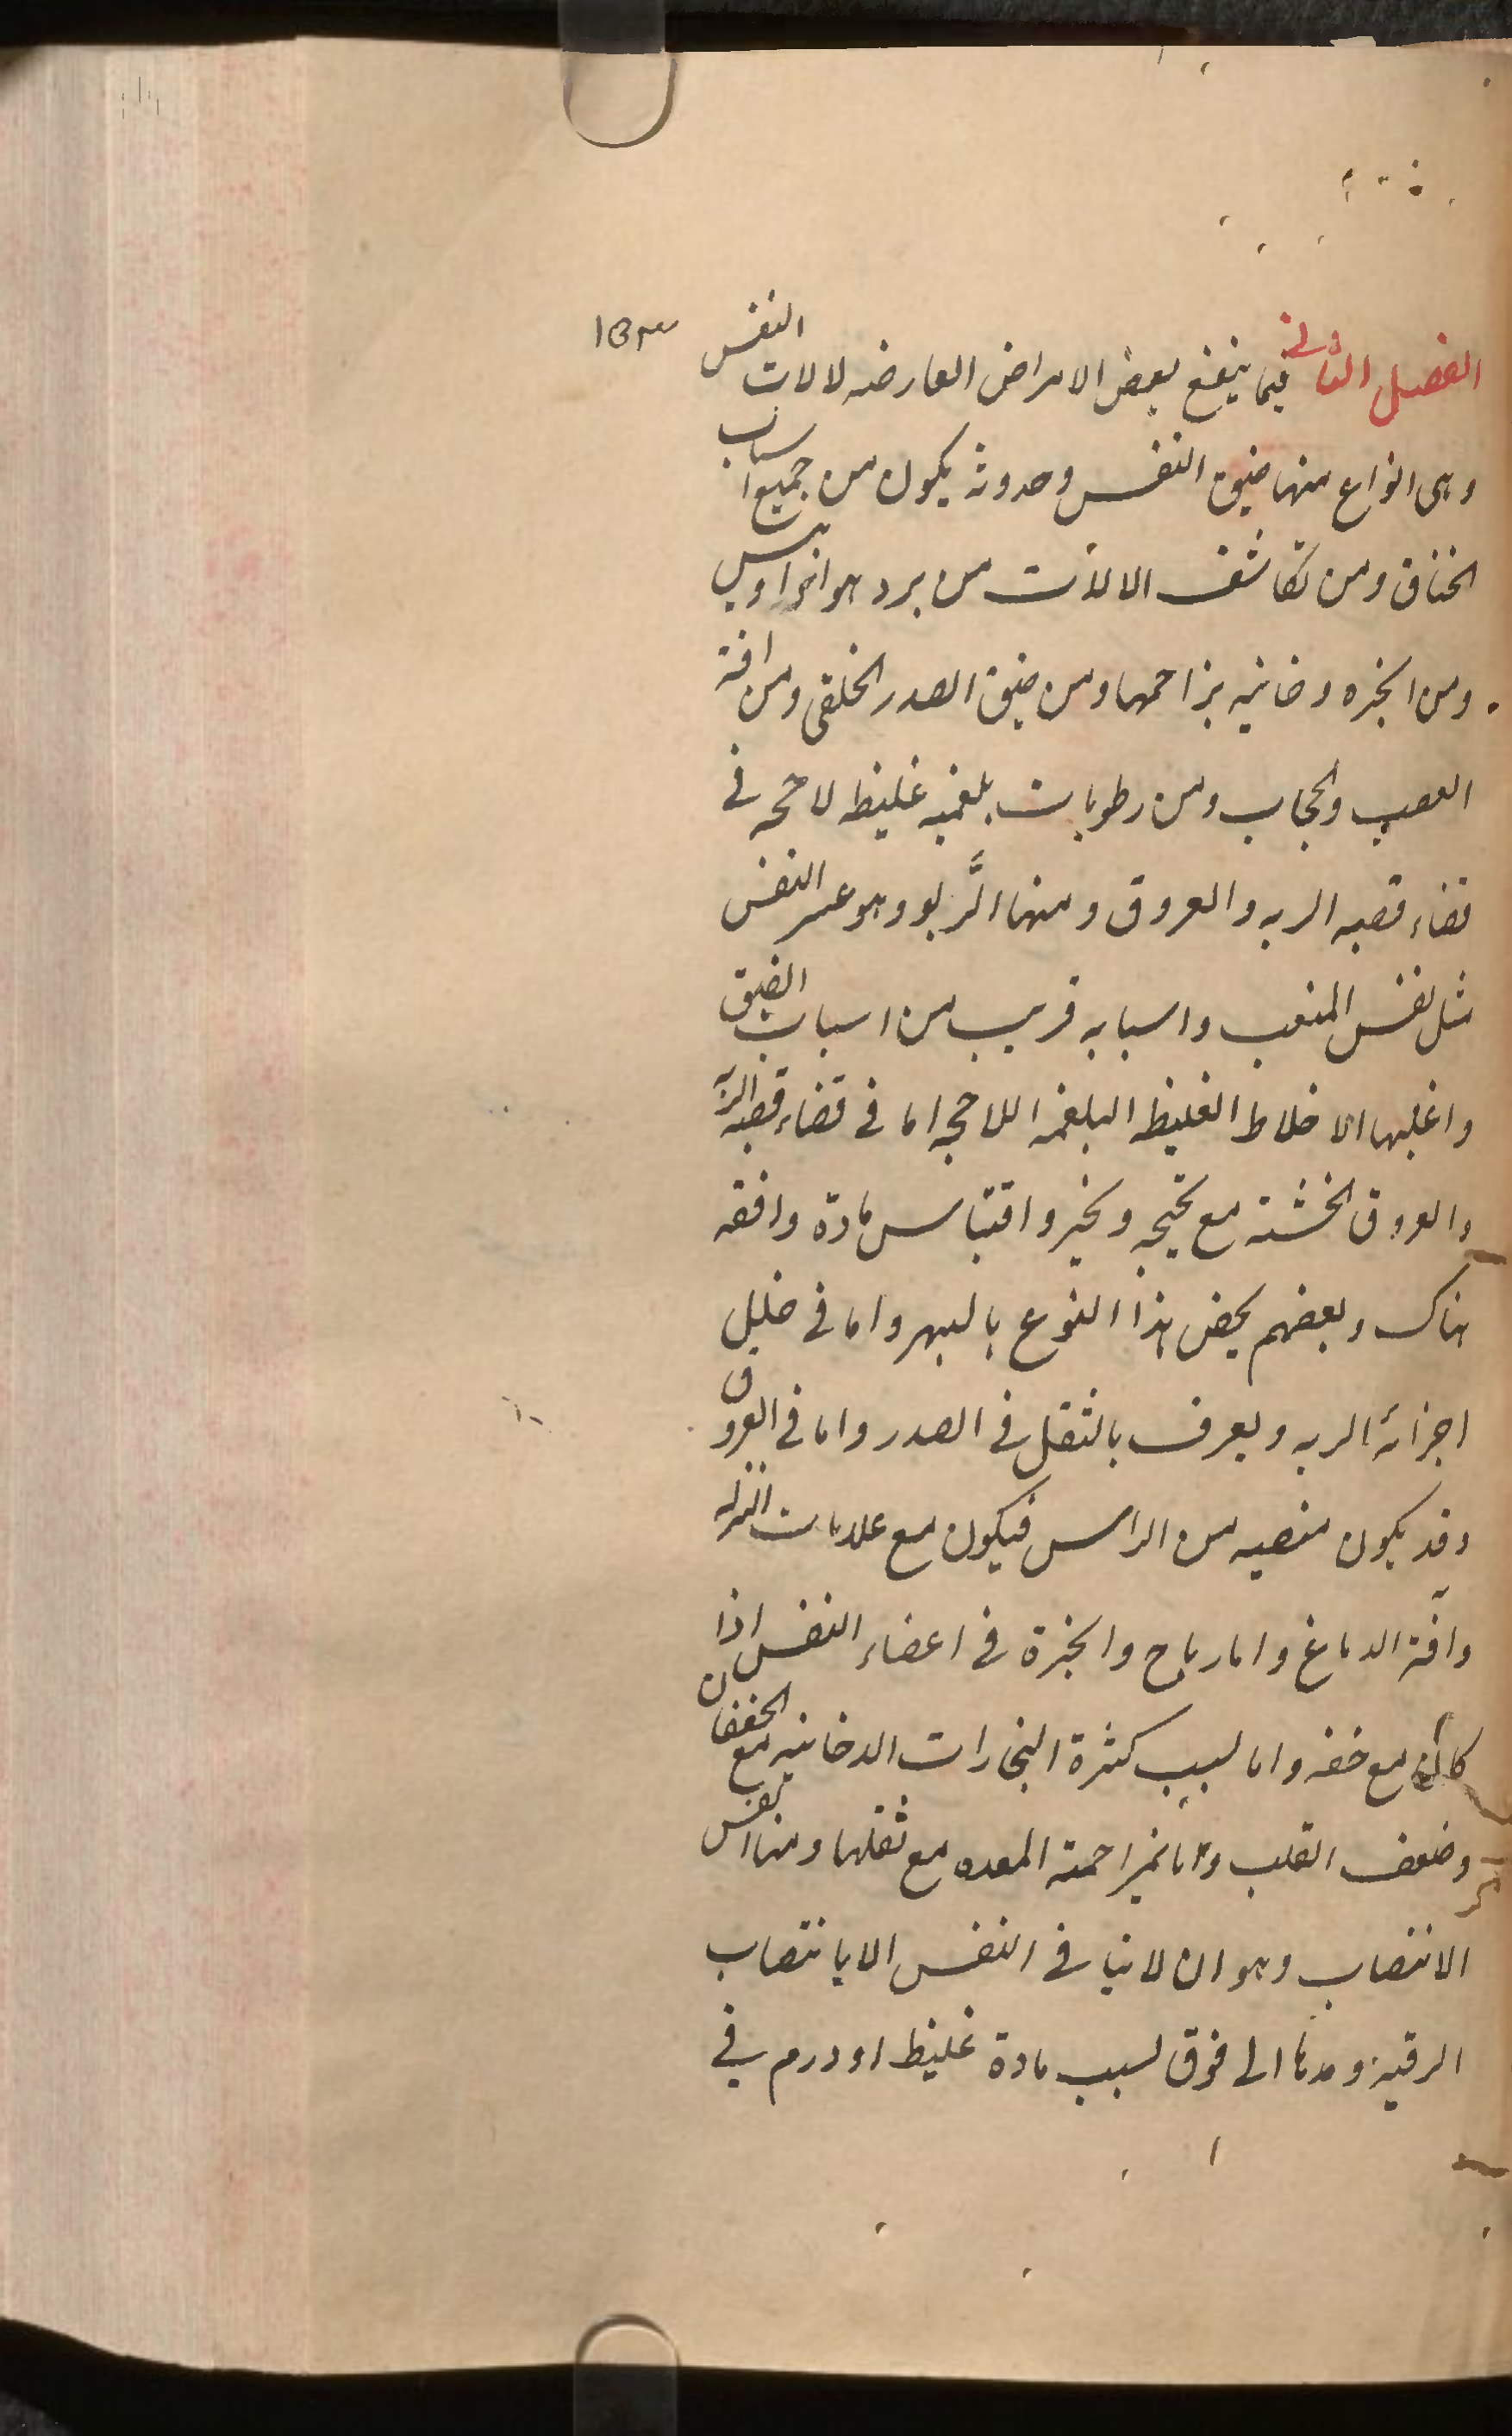 ١٥٣
الفصل الثانى فيما ينفع بعض الامراض العارضه لالات النفس
وهى انواع منها ضيق النفس وحدوثه يكون من جميع اسباب
الخناق ومن تكاثف الالات من برد هوا او يبس
ومن ابخره دخانيه يزاحمها ومن ضيق الصدر الخلقى ومن افة
العصب والحجاب ومن رطوبات بلغميه غليظه لاحجه فى
قضاء قصبه الريه والعروق ومنها الرَّبو وهو عسر النفس
مثل نفس المتعب واسبابه قريب من اسباب الضيق
واغلبها الاخلاط الغليظه البلغميه اللاحجه اما فى قضاء قصبه الريه
والعروق الخشنه مع نحيحه ونخير واقتباس مادة واقفه
هناك وبعضهم يخص هذا النوع بالبهر واما فى خلل
اجزائه الريه ويعرف بالثقل فى الصدر واما فى العروق
وقد يكون منصبه من الراس فيكون مع علامات النزله
وآفة الدماغ واما رياح وابخرة فى اعضاء النفس اذا
كان مع خفه واما لسبب كثرة البخارات الدخانيه مع الخفقان
وضعف القلب واما لمزاحمة المعده مع ثقلها ومنها نفس
الانتصاب وهو ان لا يتافى النفس الا بانتصاب
الرقبة ومدها الى فوق لسبب مادة غليظه او ورم فى